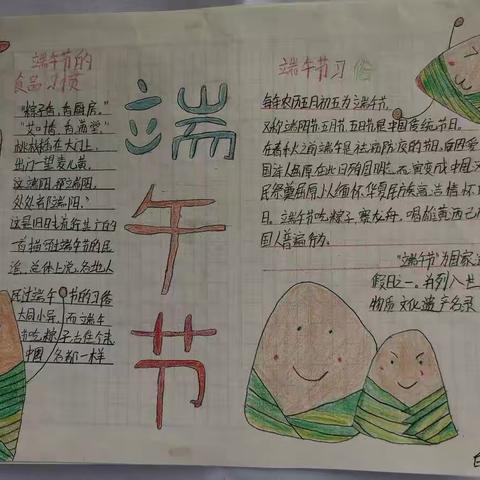 端午节的
食品习惯
"粽子香,香厨房。"
"艾叶香,香满堂"
桃枝插在大门上,
出门一望麦儿黄,
这端阳,那端阳,
处处都端阳。"
这是旧时流行甚广的
一首描写过端午节的民
谣,总体上说,各地人
民过端午节的习俗
大同小异,而端午
节吃粽子,古往今来
中国各都一样
端
午
节
端午节习俗
每年农历五月初五为端午节,
又称端阳节、五月节、五日节是中国传统节日。
在春秋之前端午是祛病防疫的节,后因爱
国诗人屈原在此日殉国明志而演变成中国
民祭奠屈原,以及缅怀华夏民族高洁情怀
日。端午节吃粽子,赛龙舟,喝雄黄酒已
国人普遍行为。
"端午节"为国家
假日之一,并列入世
物质文化遗产名录